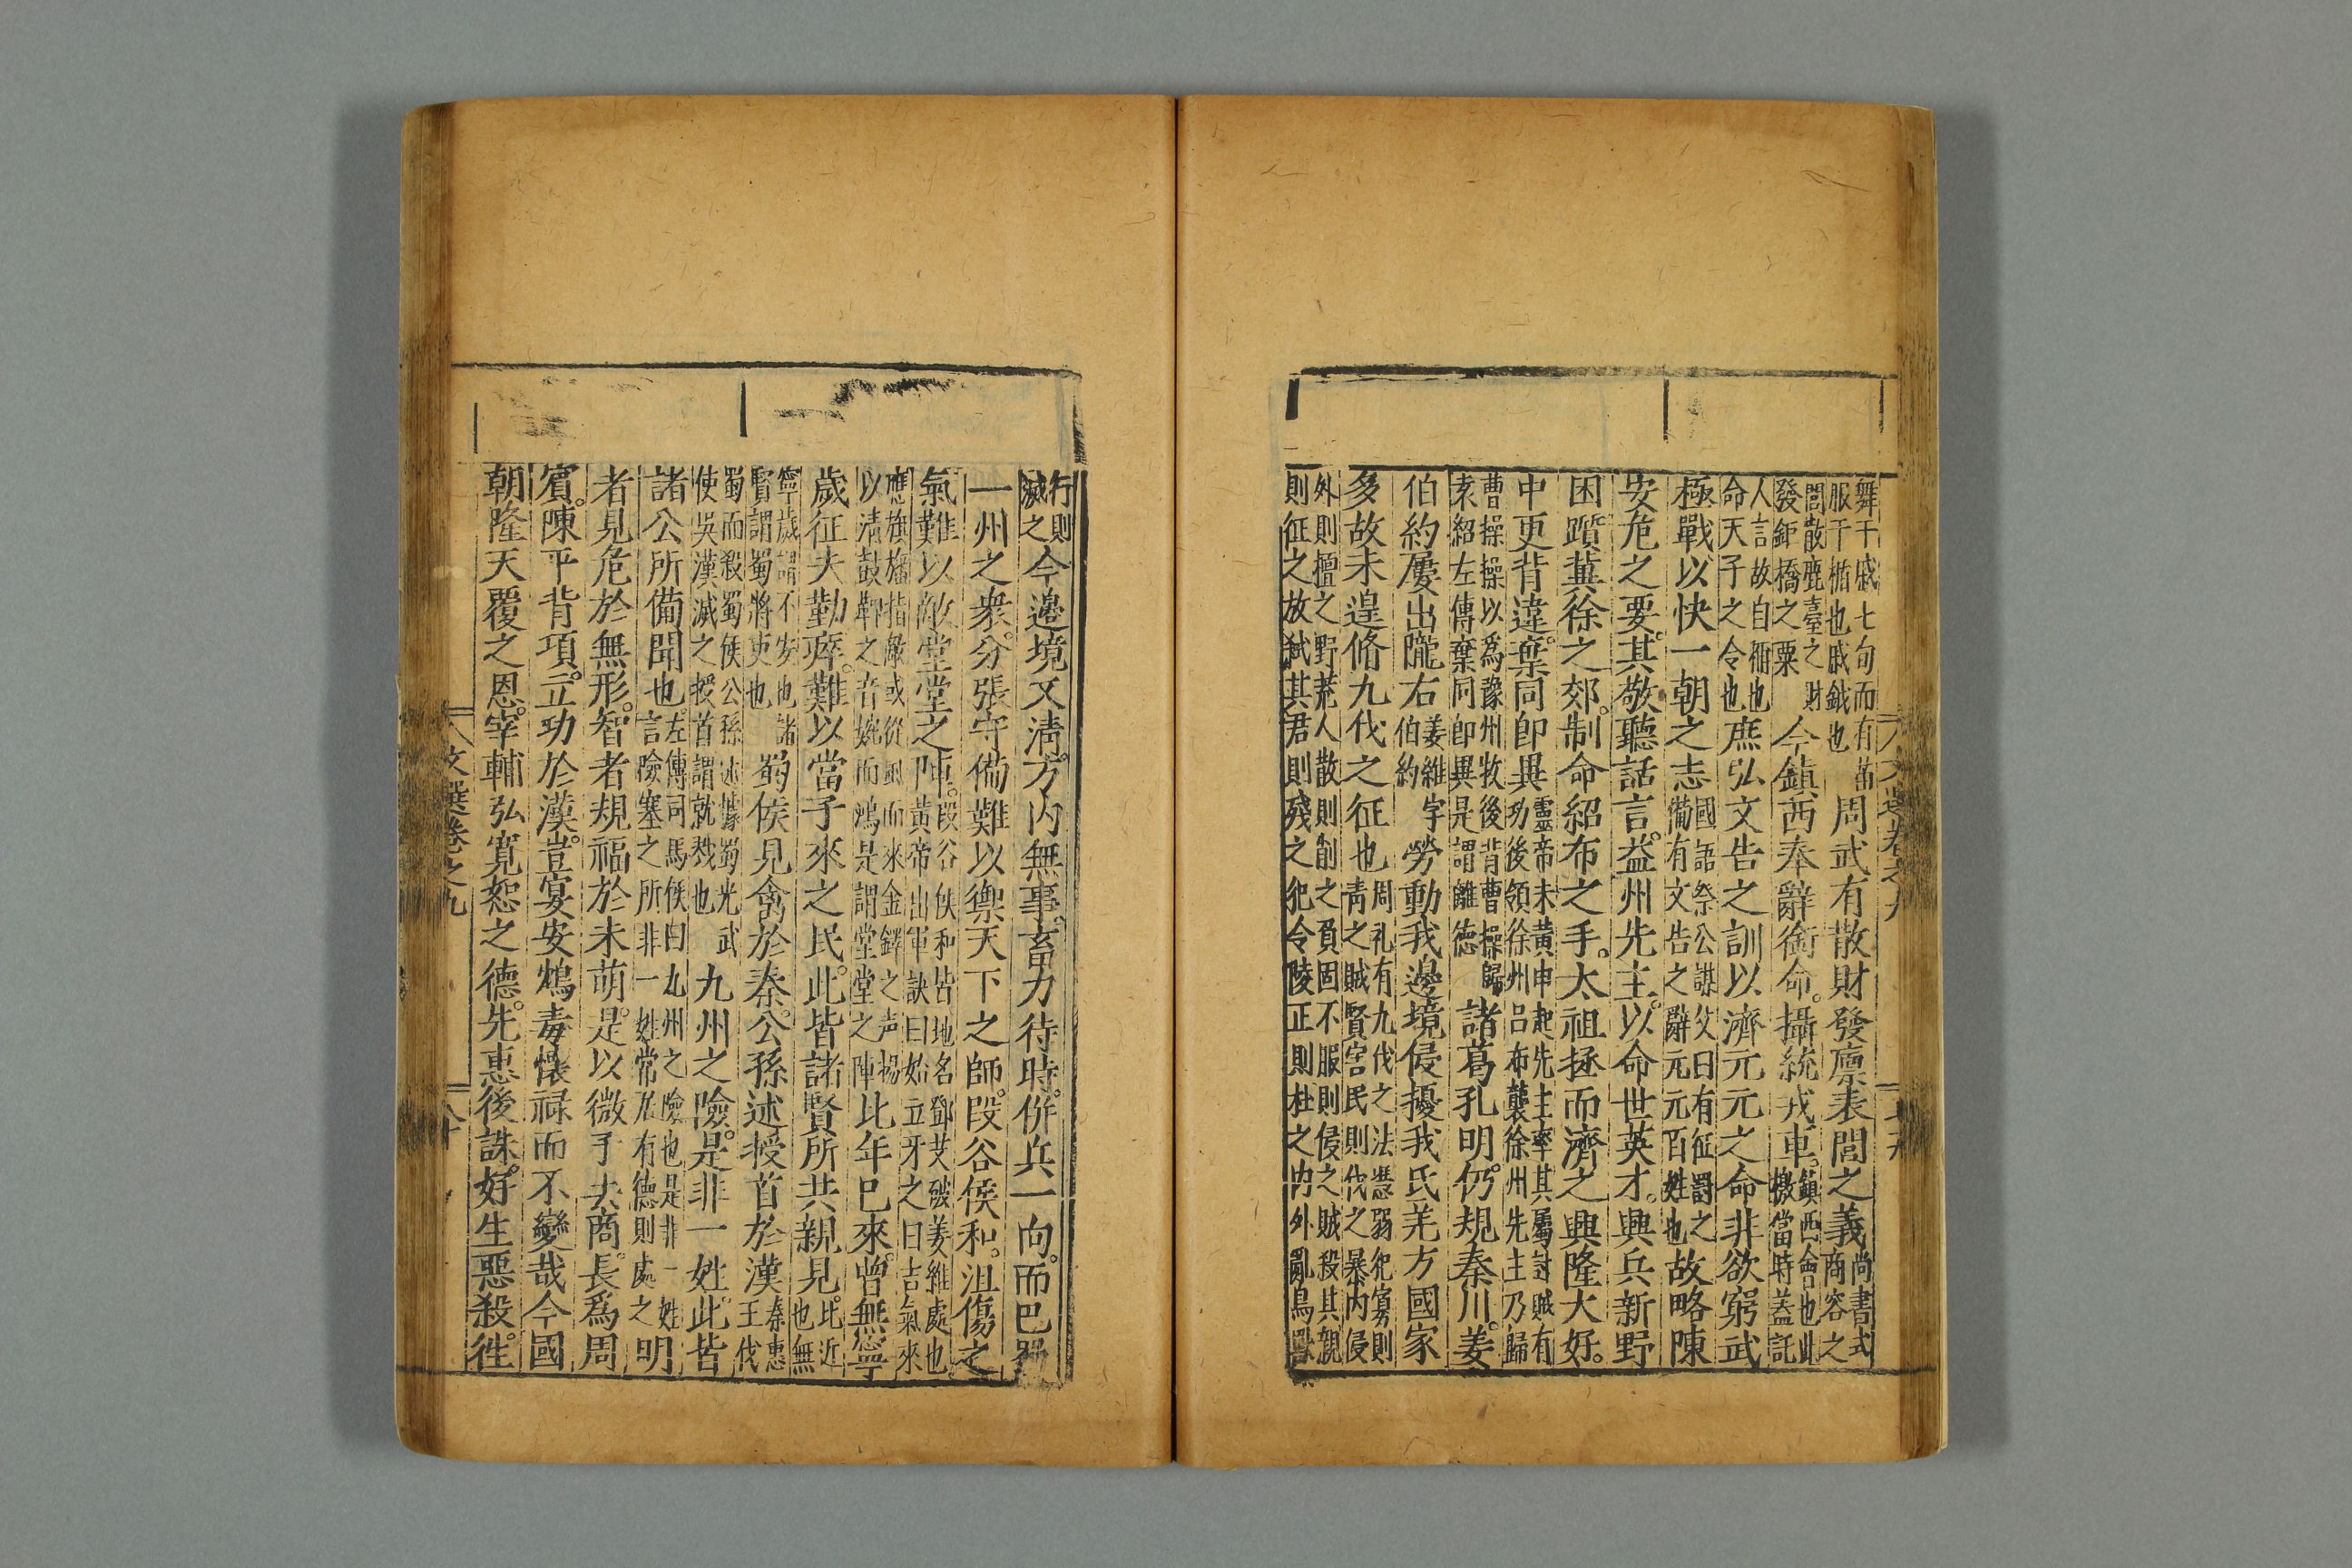 舞干戚七旬而有苗
服干楯也戚鉞也
周武有散財發廩表閭之義
尚書式
商容之
閭散鹿臺之財
發鉅橋之粟
今鎮西奉辭銜命。攝統戎車。
鎮西會也此
檄當時蓋託
人言故自稱也
命天子之令也
庶弘文告之訓以濟元元之命非欲窮武
極戰以快一朝之志
國語祭公謀父曰有征罰之
備有文告之辭元元百姓也
故略陳
安危之要。其敬聽話言。益州先主。以命世英才。興兵新野
困躓冀徐之郊。制命紹布之手。太祖拯而濟之興隆大好。
中更背違。棄同卽異
靈帝末黃巾起先主率其屬討賊有
功後領徐州呂布襲徐州先主乃歸
曹操操以爲豫州牧後背曹操歸
袁紹左傳棄同卽異是謂離德
諸葛孔明。仍規秦川。姜
伯約屢出隴右
姜維字
伯約
勞動我邊境侵擾我氐羌方國家
多故未遑脩九伐之征也
周礼有九伐之法馮弱犯寡則
眚之賊賢害民則伐之暴內侵
外則擅之野荒人散則削之負固不服則侵之賊殺其親
則征之放弑其君則殘之犯令陵正則杜之內外亂鳥獸
行則
滅之
今邊境乂清。方內無事。畜力待時。併兵一向。而巴蜀
一州之衆。分張守備難以禦天下之師。段谷侯和。沮傷之
氣難以敵堂堂之陣。
段谷侯和皆地名鄧艾破姜維處也
黃帝出軍訣曰始立牙之日吉氣來
應旗旛指敵或從風而來金鐸之声揚
以清鼓鞞之音婉而鴻是謂堂堂之陣
比年巳來。曾無寧
歲征夫勤瘁。難以當子來之民。此皆諸賢所共親見。
比近
也無
寧歲謂不安也諸
賢謂蜀將吏也
蜀侯見禽於秦。公孫述授首於漢
秦惠
王伐
蜀而殺蜀侯公孫述據蜀光武
使吳漢滅之授首謂就戮也
九州之險。是非一姓。此皆
諸公所備聞也。
左傳司馬侯曰九州之險也是非一姓
言險塞之所非一姓常居有德則處之
明
者見危於無形。智者規福於未萌。是以微子去商。長爲周
賓。陳平背項。立功於漢。豈宴安鴆毒懷祿而不變哉今國
朝隆天覆之恩。宰輔弘寬恕之德。先惠後誅。好生惡殺。徃
文選卷之九